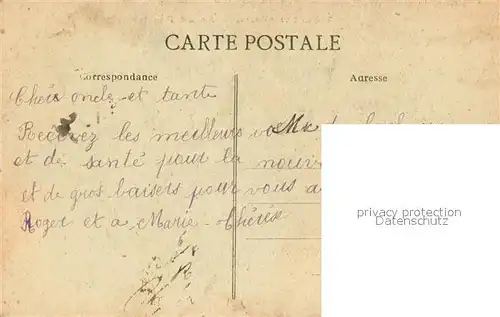 CARTE POSTALE
Correspondance
Adresse
Chers oncle et tante
Recevez les meilleurs
et de santé pour la
et de gros baisers pour vous
Roger et a Marie-Thérèse
privacy protection
Datenschutz